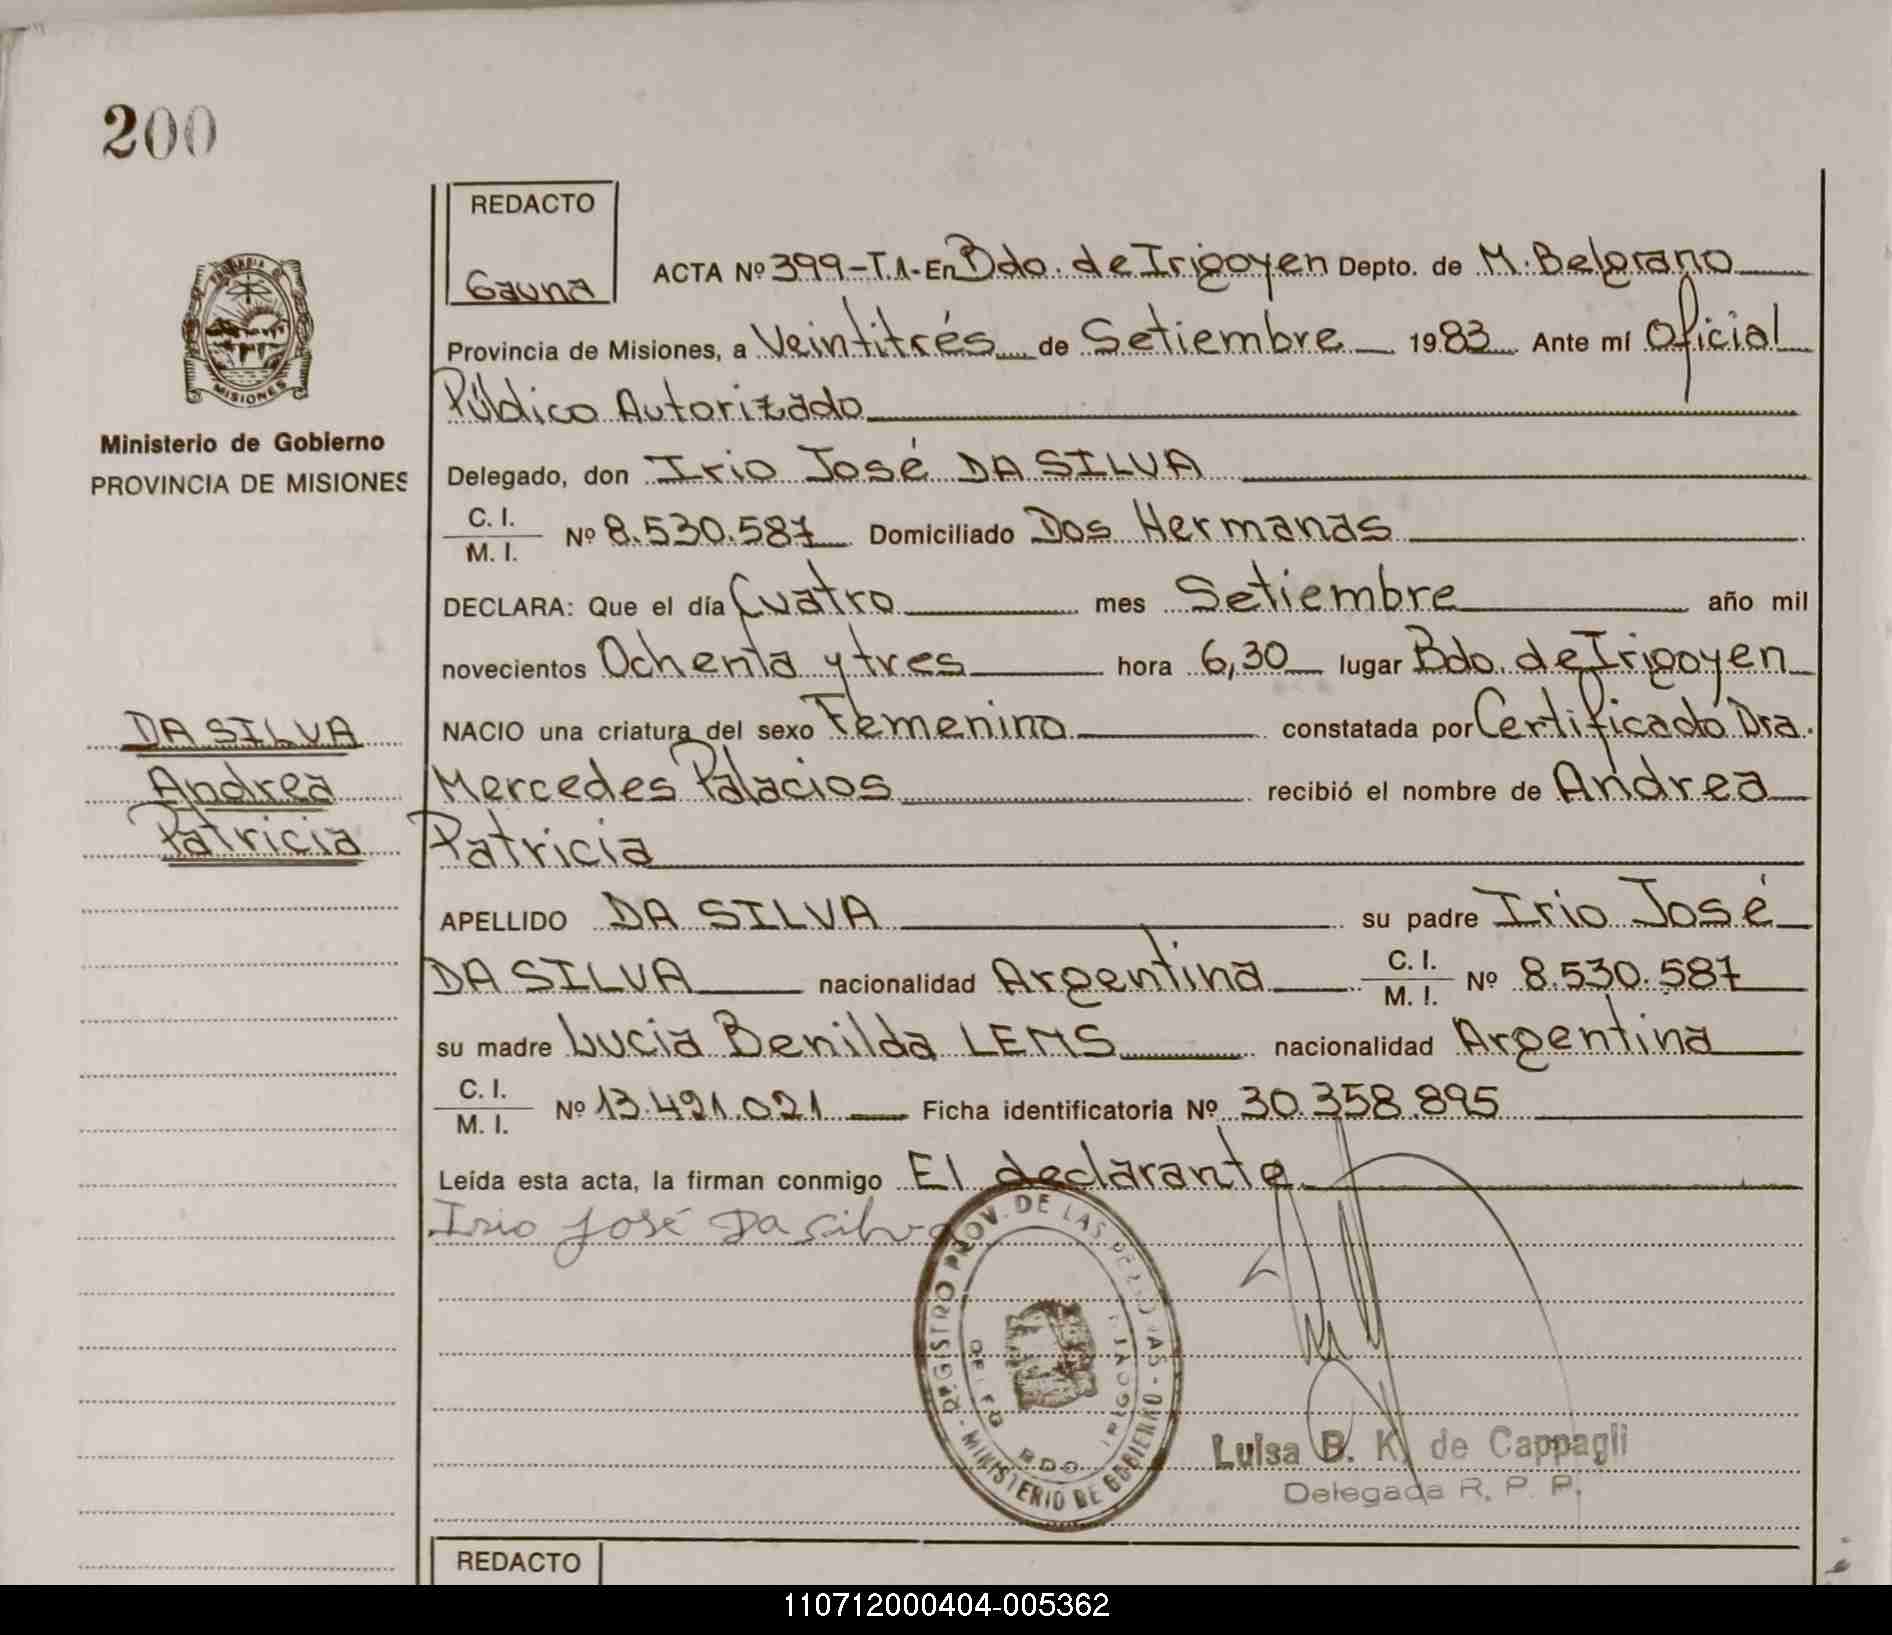 200
REDACTO
Gauna
ACTA Nº 399-T.1-En Bdo. de Irigoyen Depto. de M. Belgrano
Provincia de Misiones, a Veintitrés de Setiembre 1983 Ante mí Oficial
Público Autorizado
MISIONES
Ministerio de Gobierno
PROVINCIA DE MISIONES
Delegado, don Irio José DA SILVA
C. I.
M. I.
Nº 8.530.587 Domiciliado Dos Hermanas
DECLARA: Que el día Cuatro mes Setiembre año mil
novecientos Ochenta y tres hora 6,30 lugar Bdo. de Irigoyen
DA SILVA
Andrea
Patricia
NACIO una criatura del sexo Femenino constatada por Certificado Dra.
Mercedes Palacios recibió el nombre de Andrea
Patricia
APELLIDO DA SILVA su padre Irio José
DA SILVA nacionalidad Argentina C. I. M. I. Nº 8.530.587
su madre Lucia Benilda LEMS nacionalidad Argentina
C. I.
M. I.
Nº 13.491.021 Ficha identificatoria Nº 30.358.895
Leída esta acta, la firman conmigo El declarante
Irio José Da Silva
REGISTRO PROV. DE LAS PERSONAS - MINISTERIO DE GOBIERNO
BDO. IRIGOYEN
Luisa B. K. de Cappagli
Delegada R. P. P.
REDACTO
110712000404-005362